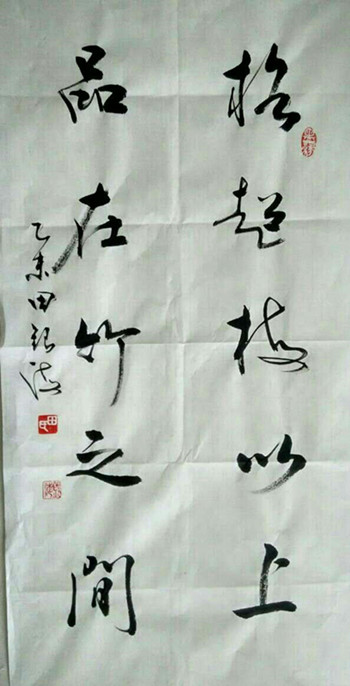 格超梅以上
品在竹之间
乙未田银波